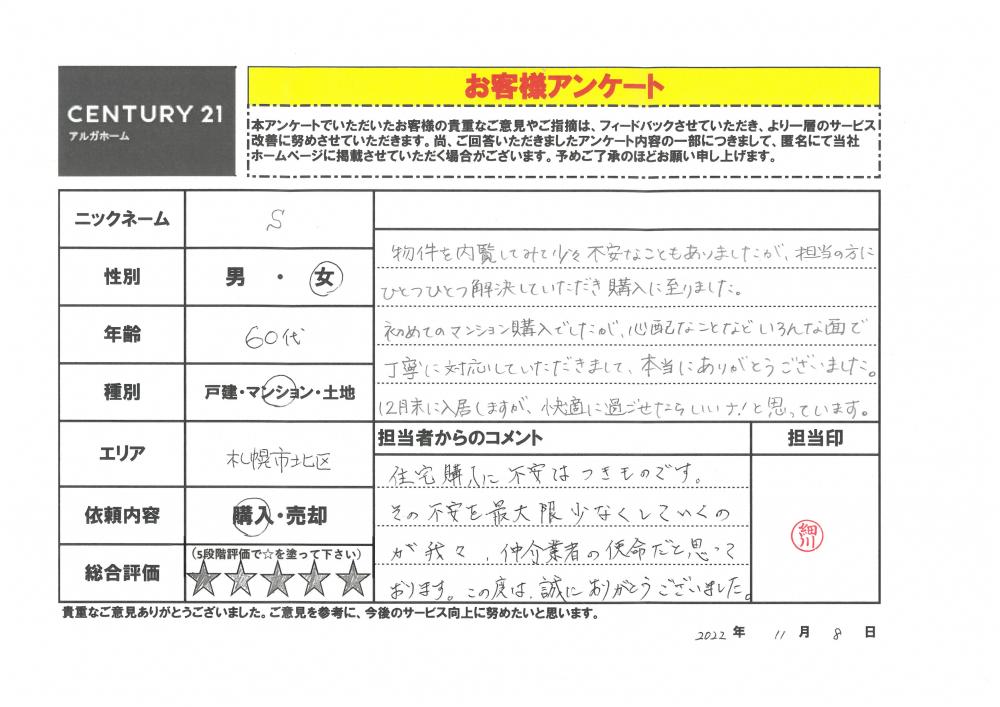 CENTURY 21
アルガホーム
お客様アンケート
本アンケートでいただいたお客様の貴重なご意見やご指摘は、フィードバックさせていただき、より一層のサービス
改善に努めさせていただきます。尚、ご回答いただきましたアンケート内容の一部につきまして、匿名にて当社
ホームページに掲載させていただく場合がございます。予めご了承のほどお願い申し上げます。
ニックネーム
S
性別
男 ・ 女
年齢
60代
種別
戸建・マンション・土地
エリア
札幌市北区
依頼内容
購入・売却
総合評価
(5段階評価で☆を塗って下さい)
★★★★★
物件を内覧してみて少々不安なこともありましたが、担当の方に
ひとつひとつ解決していただき購入に至りました。
初めてのマンション購入でしたが、心配なことなどいろんな面で
丁寧に対応していただきまして、本当にありがとうございました。
12月末に入居しますが、快適に過ごせたらいいナ!と思っています。
担当者からのコメント
担当印
住宅購入に不安はつきものです。
その不安を最大限少なくしていくの
が我々、仲介業者の使命だと思って
おります。この度は、誠にありがとうございました。
細川
貴重なご意見ありがとうございました。ご意見を参考に、今後のサービス向上に努めたいと思います。
2022年 11月 8日